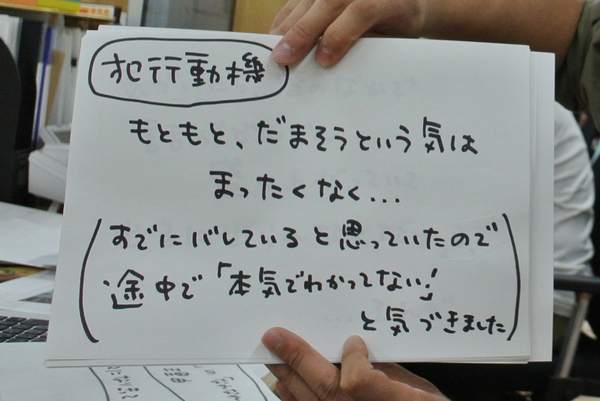 犯行動機
もともと、だまそうという気は
まったくなく…
(すでにバレていると思っていたので
途中で「本気でわかってない!」
と気づきました)
理由